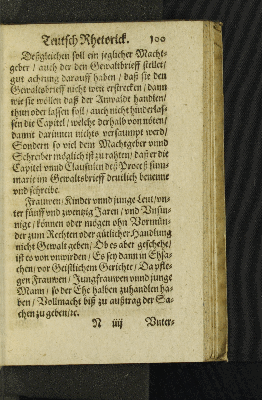 Teutsch Rhetorick. 100
Deßgleichen soll ein jeglicher Macht-
geber / auch der den Gewaltbrieff stellet /
gut achtung darauff haben / daß sie den
Gewaltsbrieff nicht weit erstrecken / dann
wie sie wöllen daß der Anwaldt handlen /
thun oder lassen soll / auch nicht hunderlas-
sen die Capitel / welche derhalb von nöten /
damit darinnen nichts versaumpt werd /
Sondern so viel dem Machtgeber vnnd
Schreiber möglich ist zu rahten / daß er die
Capitel vnnd Clausulen deß Proceß sum-
marie im Gewaltsbrieff deutlich benenne
vnd schreibe.
Frauwen / Kinder vnnd junge Leut / vn-
ter fünff vnd zwentzig Jaren / vnd Vnsin-
nige / können oder mögen ohn Vormün-
der zum Rechten oder gütlicher Handlung
nicht Gewalt geben / Ob es aber geschehe /
ist es von vnwirden / Es sey dann in Ehsa-
chen / vor Geistlichem Gerichte / Da pfle-
gen Frauwen / Jungfrauwen vnnd junge
Mann / so der Ehe halben zuhandlen ha-
ben / Vollmacht biß zu außtrag der Sa-
chen zu geben / ꝛc.
N iiij Vnter-